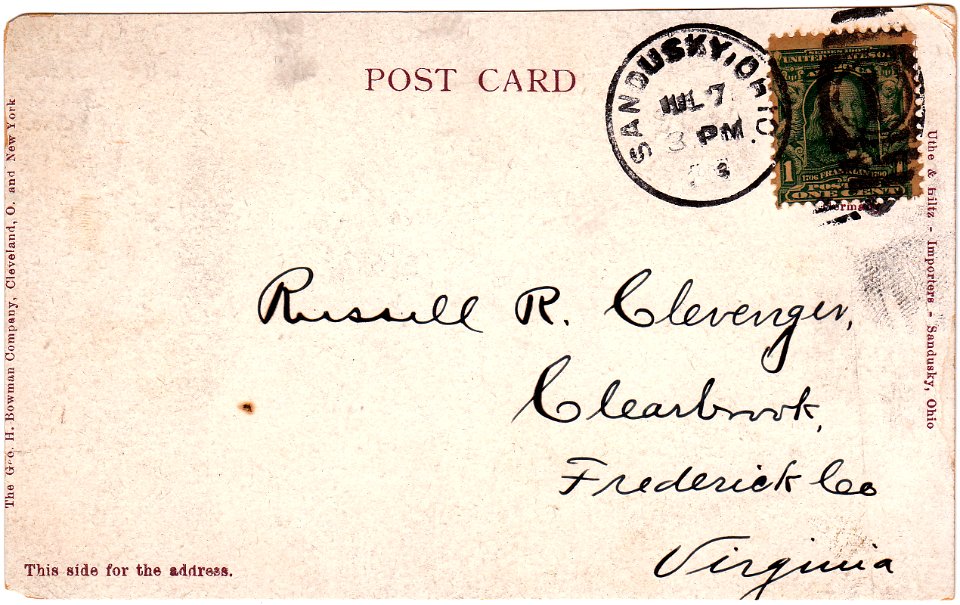 POST CARD
SANDUSKY, OHIO
JUL 7
3 PM
SERIES 1902
UNITED STATES OF
AMERICA
1706 FRANKLIN 1790
1
POSTAGE
ONE CENT
Russell R. Clevenger,
Clearbrook,
Frederick Co
Virginia
This side for the address.
The Geo. H. Bowman Company, Cleveland, O. and New York
Uthe & Hiltz - Importers - Sandusky, Ohio